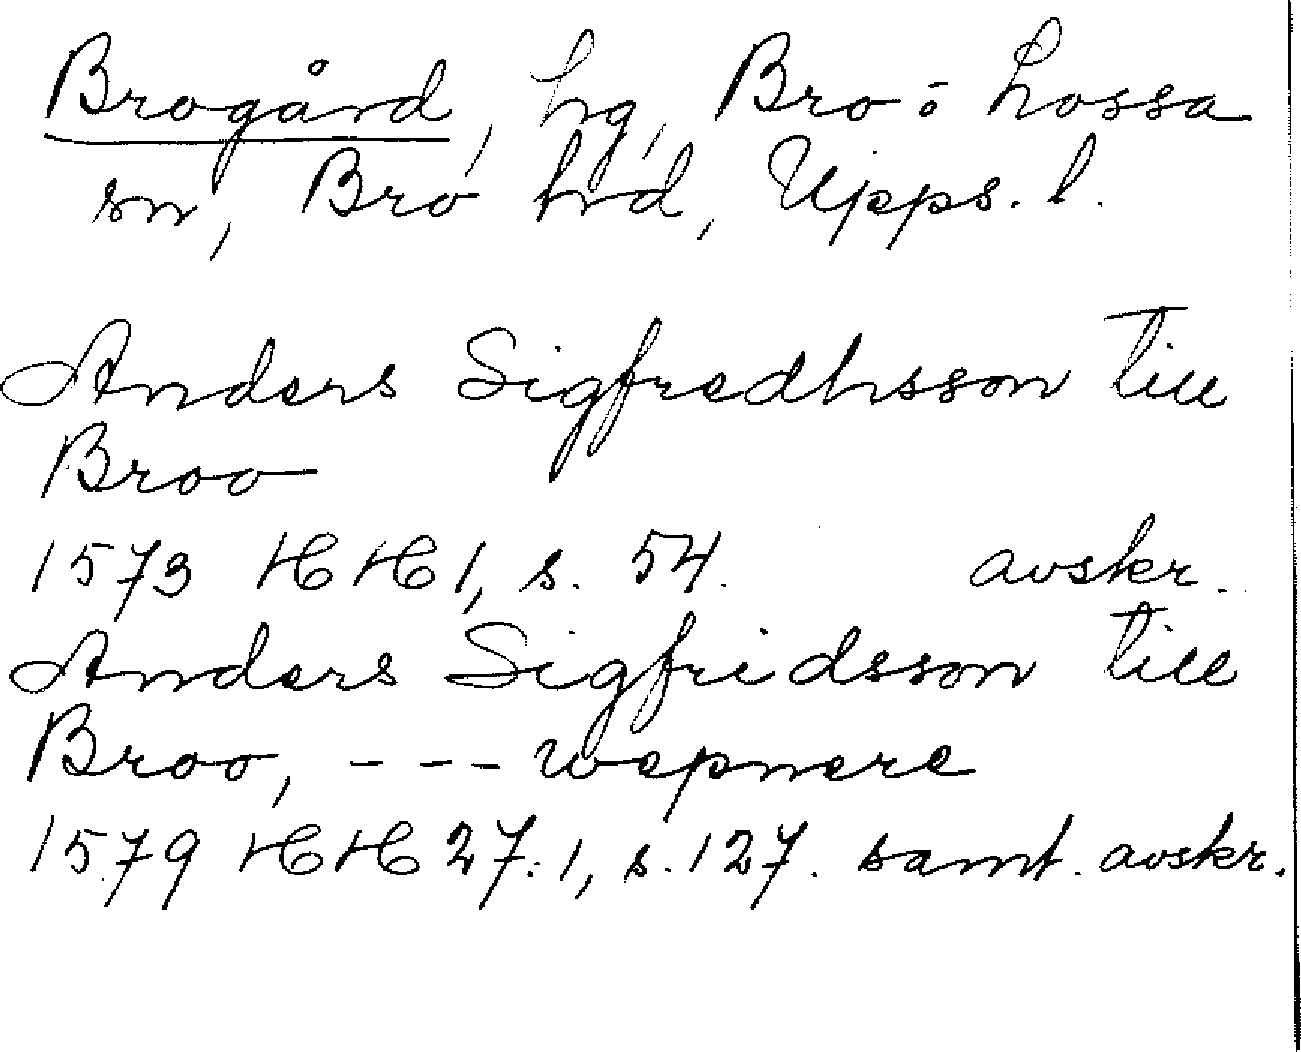 Brogård, hg, Bro o Lossa
sn, Bro hrd, Upps. l.
Anders Sigfredhsson till
Broo
1573 HH 1, s. 54. avskr.
Anders Sigfridsson till
Broo, --- wepnere
1579 HH 27:1, s. 127. samt. avskr.